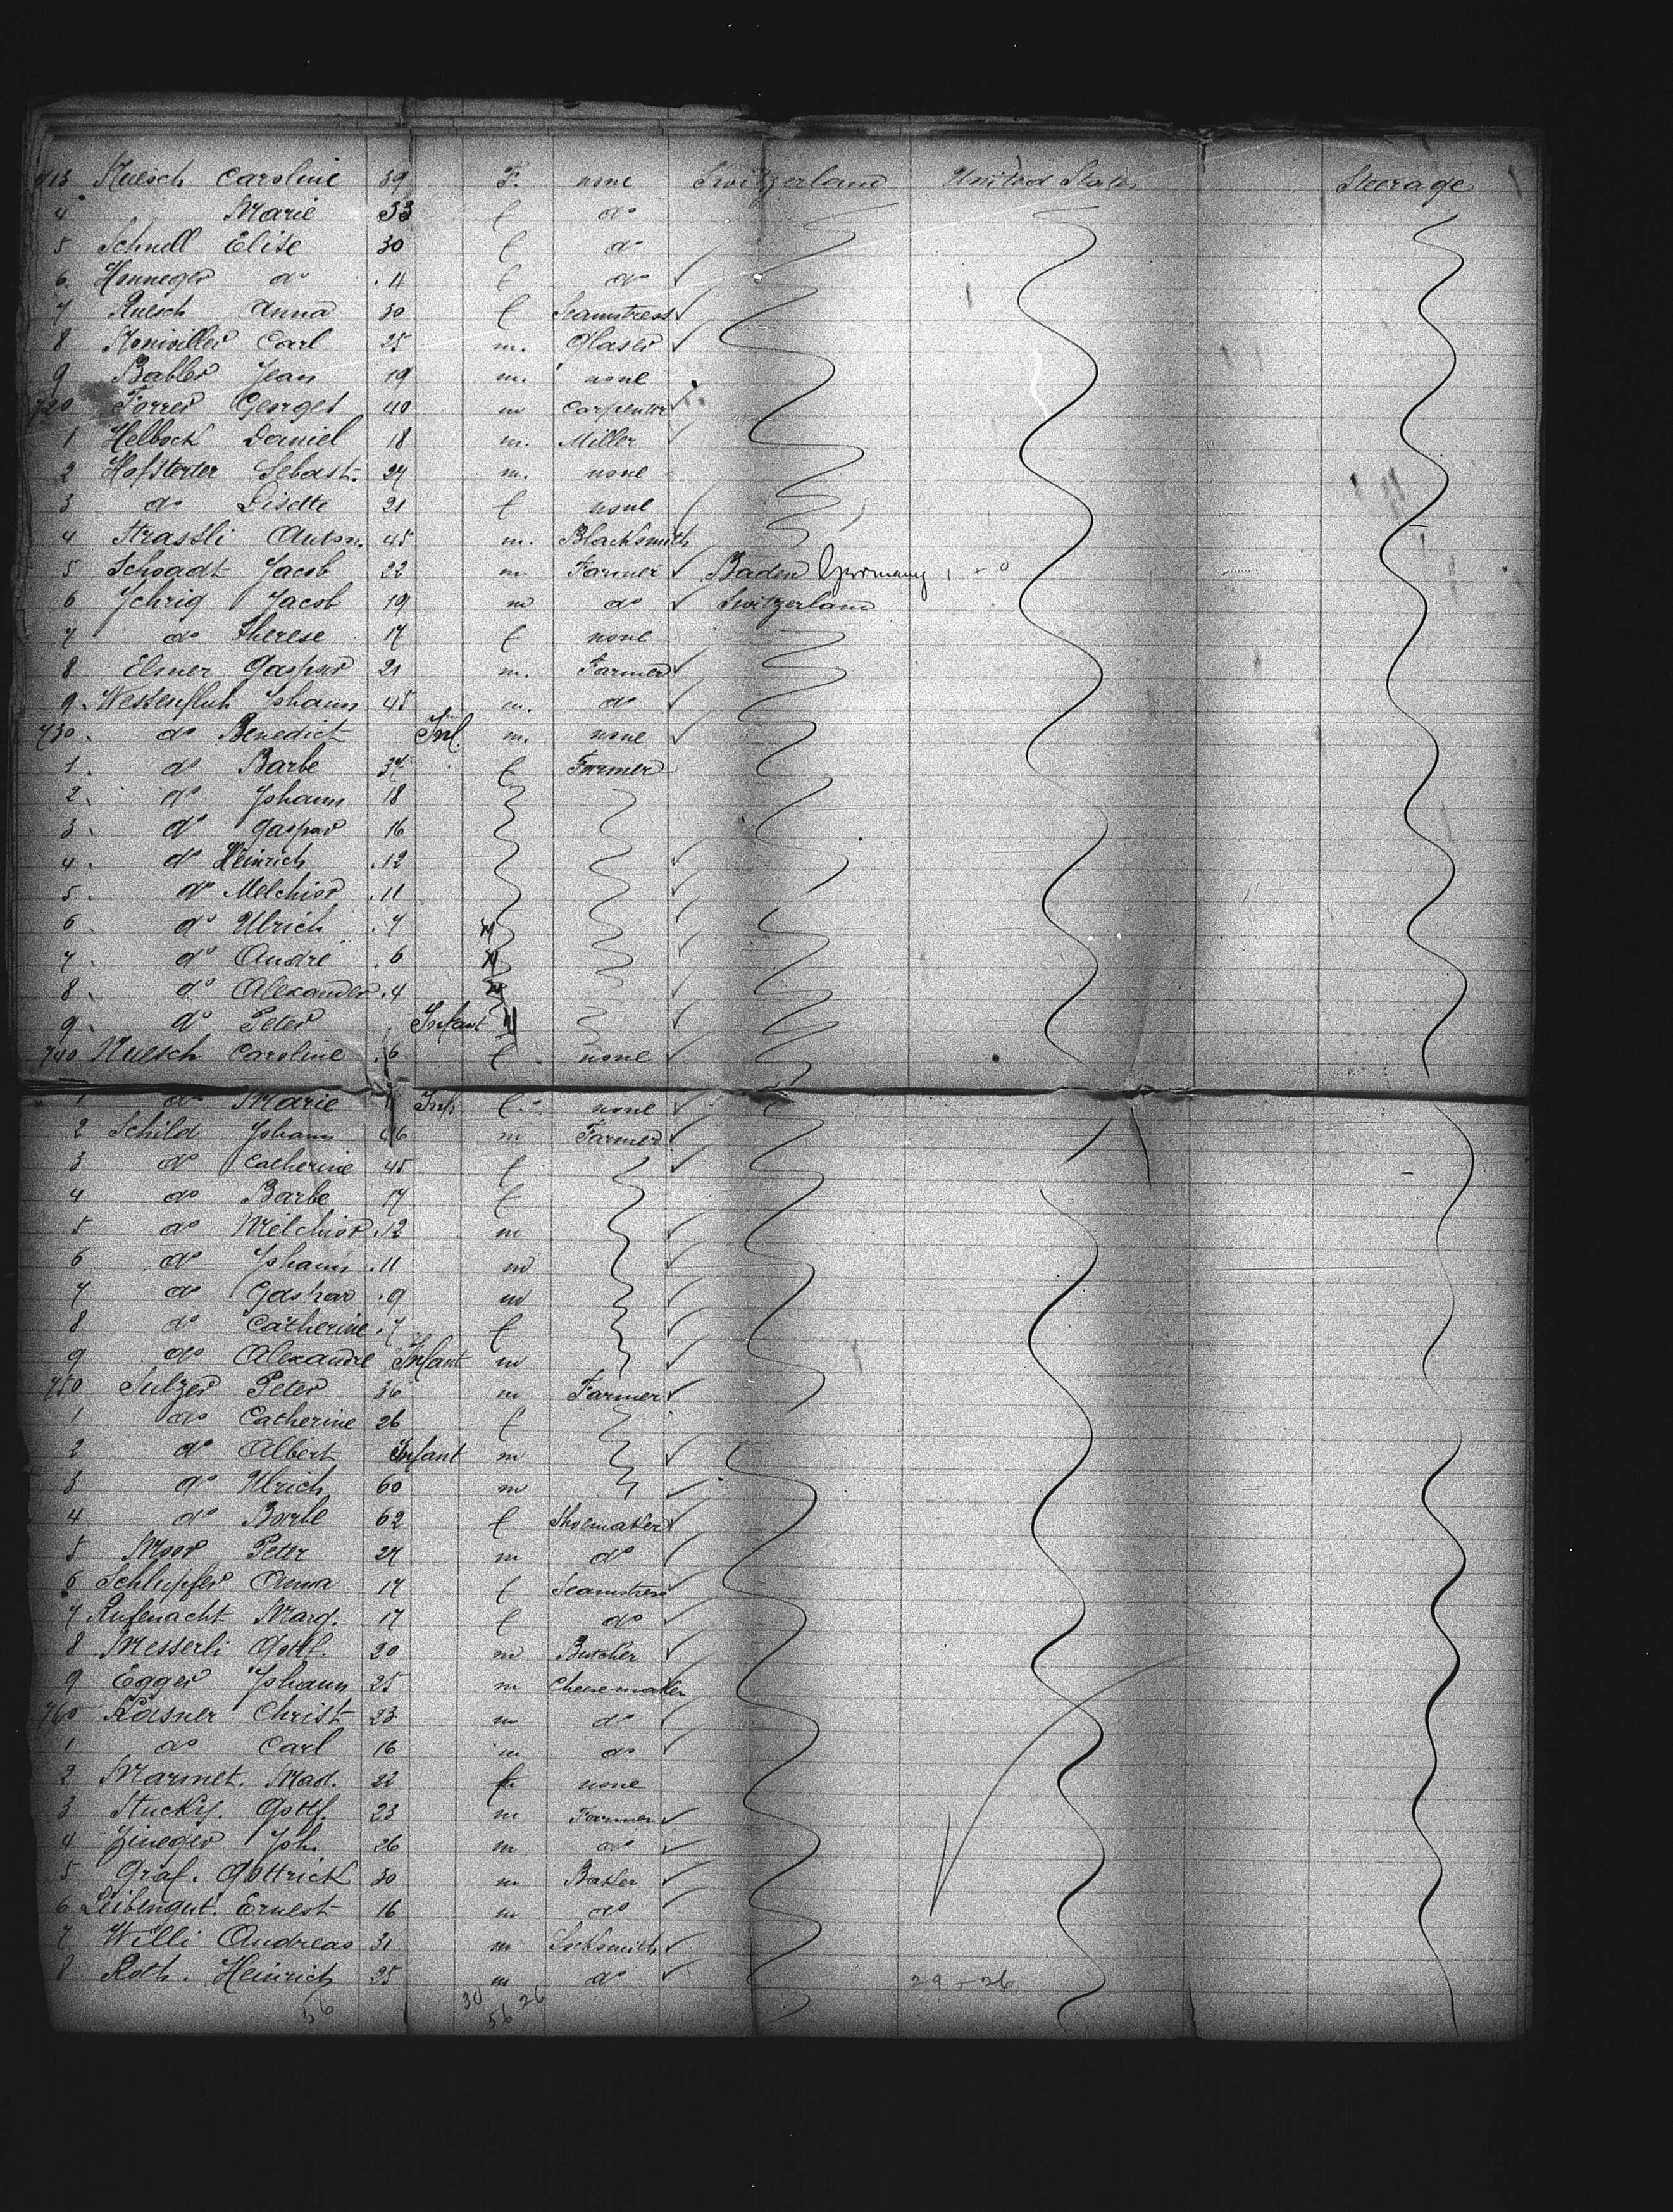 713 Nuesch Caroline 39 F. none Switzerland United States Steerage
4 Marie 33 f do
5 Schnell Elise 30 f do
6. Honneger do . 11 f do
7 Ruesch Anna 30 f Seamstress
8 Carl 25 m. Glaser
9 Babler Jean 19 m. none
720 Forrer Georges 40 m Carpenter
1 Helbock Daniel 18 m. Miller
2 Hofsteter Sebast. 27 m. none
3 do Lisette 21 f none
4 Strassli Anton. 45 m. Blacksmith
5 Schoadt Jacob 22 m Farmer Baden Germany
6 Jchrig Jacob 19 m do Switzerland
7 do Therese 17 f none
8 Elmer Gaspar 21 m. Farmer
9. Westenfluh Johann 45 m. do
730. do Benedict Inf. m. none
1. do Barbe 37 f Farmer
2. do Johann 18
3. do Gaspar 16
4. do Heinrich . 12
5. do Melchior . 11
6. do Ulrich . 7
7. do André . 6
8. do Alexander . 4
9. do Peter Infant
740 Nuesch Caroline . 6 f none
1 do Marie Inf. f. none
2 Schild Johann 46 m Farmer
3 do Catherine 45 f
4 do Barbe 17 f
5 do Melchior . 12 m
6 do Johann . 11 m
7 do Gaspar . 9 m
8 do Catherine . 7 f
9 do Alexandre Infant m
750 Sulzer Peter 36 m Farmer
1 do Catherine 26 f
2 do Albert Infant m
3 do Ulrich 60 m
4 do Barbe 62 f Shoemaker
5 Moor Peter 27 m do
6 Schlupfer Anna 17 f Seamstress
7 Rufenacht Marg. 17 f do
8 Messerli Gottf. 20 m Butcher
9 Egger Johann 25 m Cheesemaker
760 Käsner Christ 23 m do
1 do Carl 16 m do
2 Marmet. Mad. 22 f none
3 Stucky. Gottf. 23 m Farmer
4 Joh. 26 m do
5 Graf. Gottrick 30 m Baker
6 Leibengut. Ernest 16 m do
7 Willi Andreas 31 m Locksmith
8 Roth. Heinrich 25 m do 29 - 26
56 30 26
56